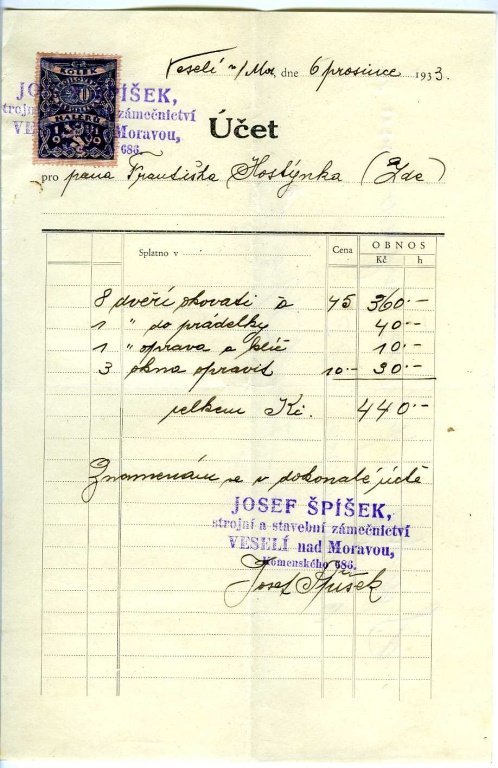 Veselí n/Mor. dne 6 prosince 1933.
KOLEK
HALÉŘŮ
JOSEF ŠPÍŠEK,
strojní zámečnictví
VESELÍ Moravou,
686.
Účet
pro pana Františka Hostýnka (Zde)
Splatno v Cena OBNOS
Kč h
8 dveří okovati a 45 360.-
1 " do prádelky 40.-
1 " oprava a klíč 10.-
3 okna opravit 10.- 30.-
celkem Kč. 440.-
Znamenám se v dokonalé úctě
JOSEF ŠPÍŠEK,
strojní a stavební zámečnictví
VESELÍ nad Moravou,
Komenského 686.
Josef Špíšek